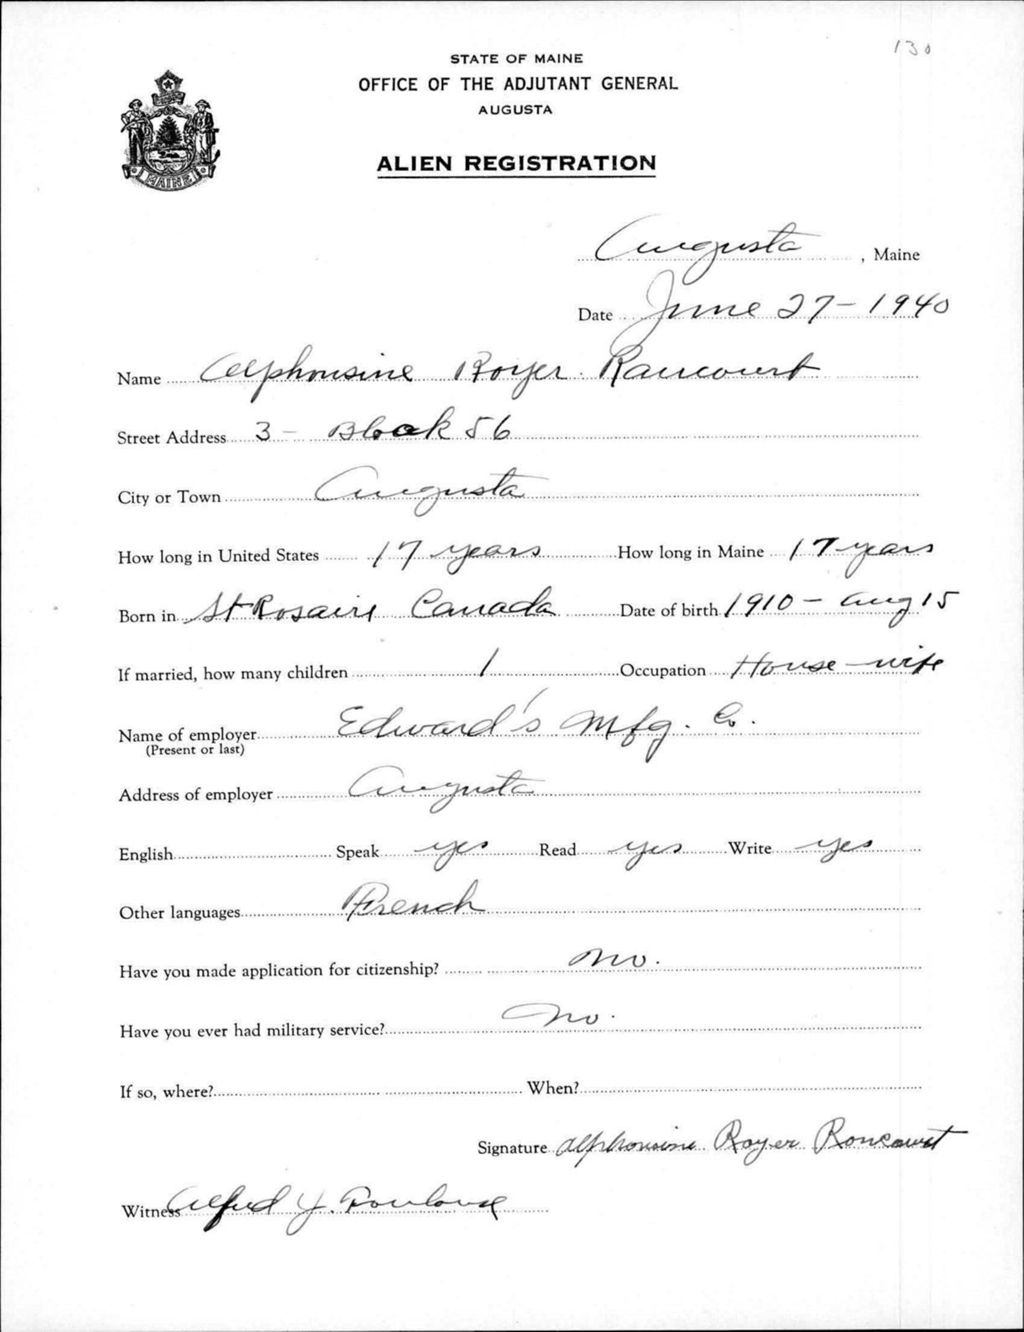 130
STATE OF MAINE
OFFICE OF THE ADJUTANT GENERAL
AUGUSTA
MAINE
ALIEN REGISTRATION
Augusta, Maine
Date June 27 - 1940
Name Alphonsine Royer Rancourt
Street Address 3 - Block 56
City or Town Augusta
How long in United States 17 years How long in Maine 17 years
Born in St Rosaire Canada Date of birth 1910 - Aug 15
If married, how many children 1 Occupation House-wife
Name of employer Edward's Mfg. Co.
(Present or last)
Address of employer Augusta
English Speak yes Read yes Write yes
Other languages French
Have you made application for citizenship? No.
Have you ever had military service? No.
If so, where? When?
Signature Alphonsine Royer Rancourt
Witness Alfred J.